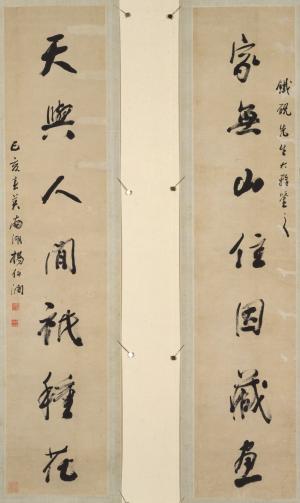 鐵硯先生大雅鑒之
家無山住因藏畫
天與人間祇種花
己亥春莫南湖楊伯潤